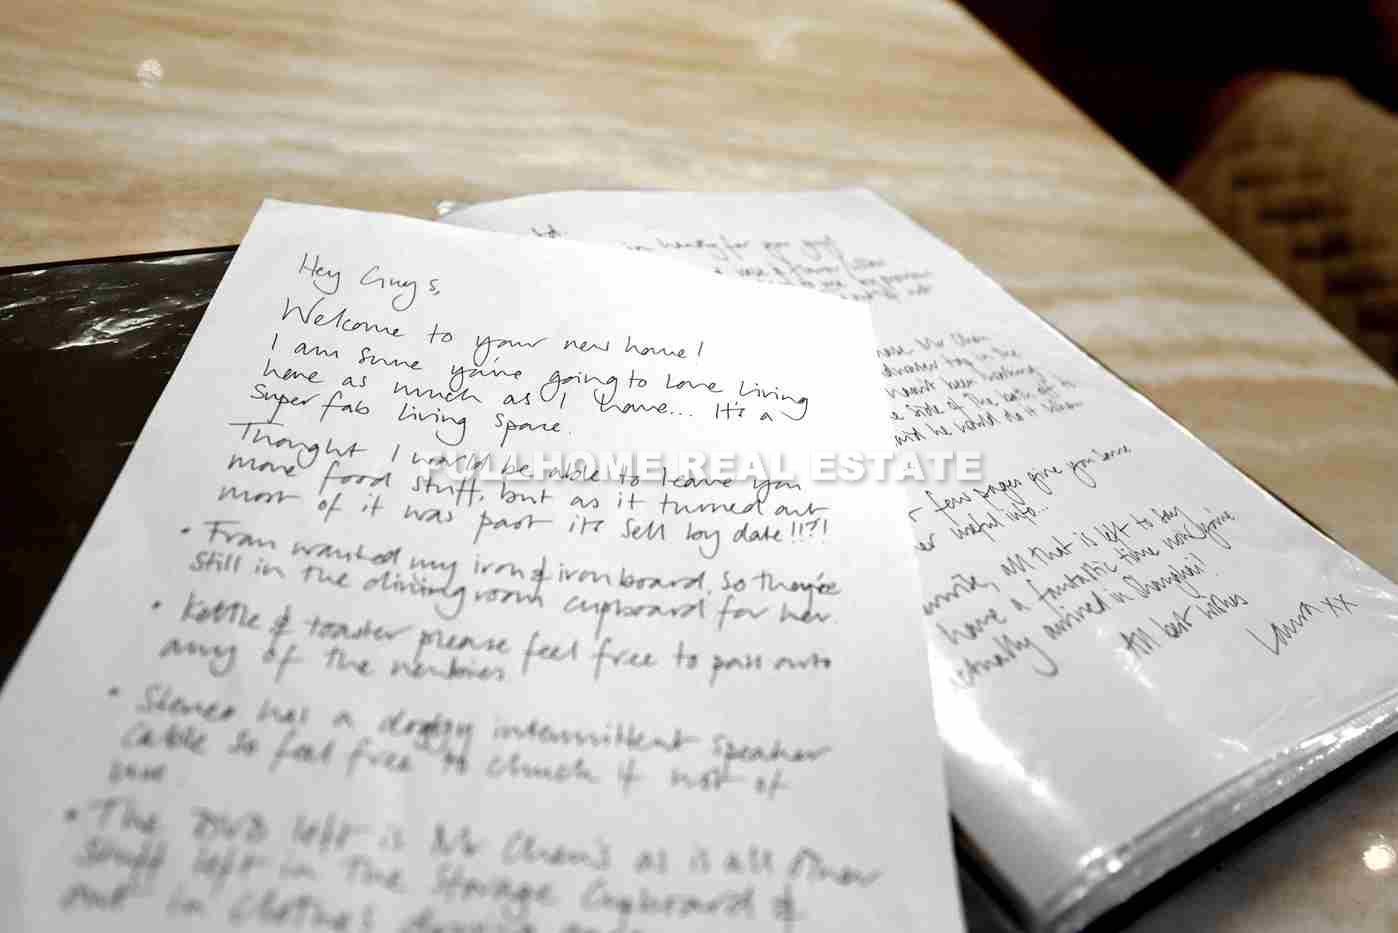 Hey Guys,
Welcome to your new home!
I am sure you're going to love living
here as much as I have... It's a
Super fab living space.
Thought I would be able to leave you
more food stuff, but as it turned out
most of it was past its sell by date!!?!
• Fran wanted my iron & iron board, so they're
still in the dining room cupboard for her.
• Kettle & toaster please feel free to pass onto
any of the newbies
• Stereo has a dodgy intermittent speaker
cable so feel free to chuck if not of
use
• The DVD left is Mr Chen's as is all other
stuff left in the storage cupboard &
out in clothes
PULLHOME REAL ESTATE
in handy for you guys!
Mr Chen
in the
hasn't been working
side of the
he would do it
few pages give you some
useful info...
all that is left to say
have a fantastic time now you've
actually arrived in Shanghai!
All best wishes
Laura xx